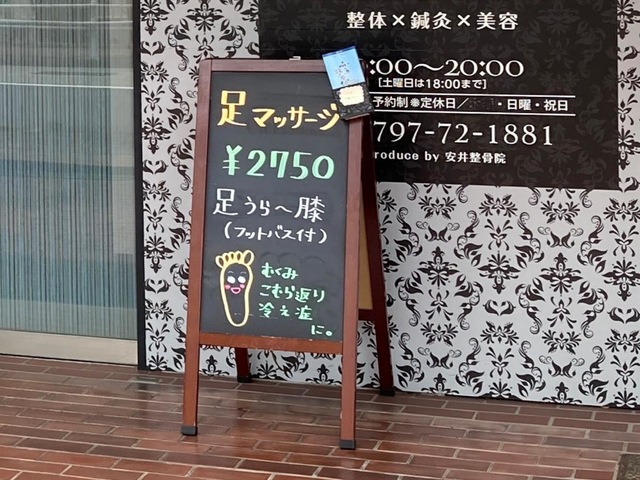 整体×鍼灸×美容
:00〜20:00
[土曜日は18:00まで]
予約制❋定休日／ ・日曜・祝日
797-72-1881
roduce by 安井整骨院
足マッサージ
¥2750
足うら〜膝
(フットバス付)
むくみ
こむら返り
冷え症
に。